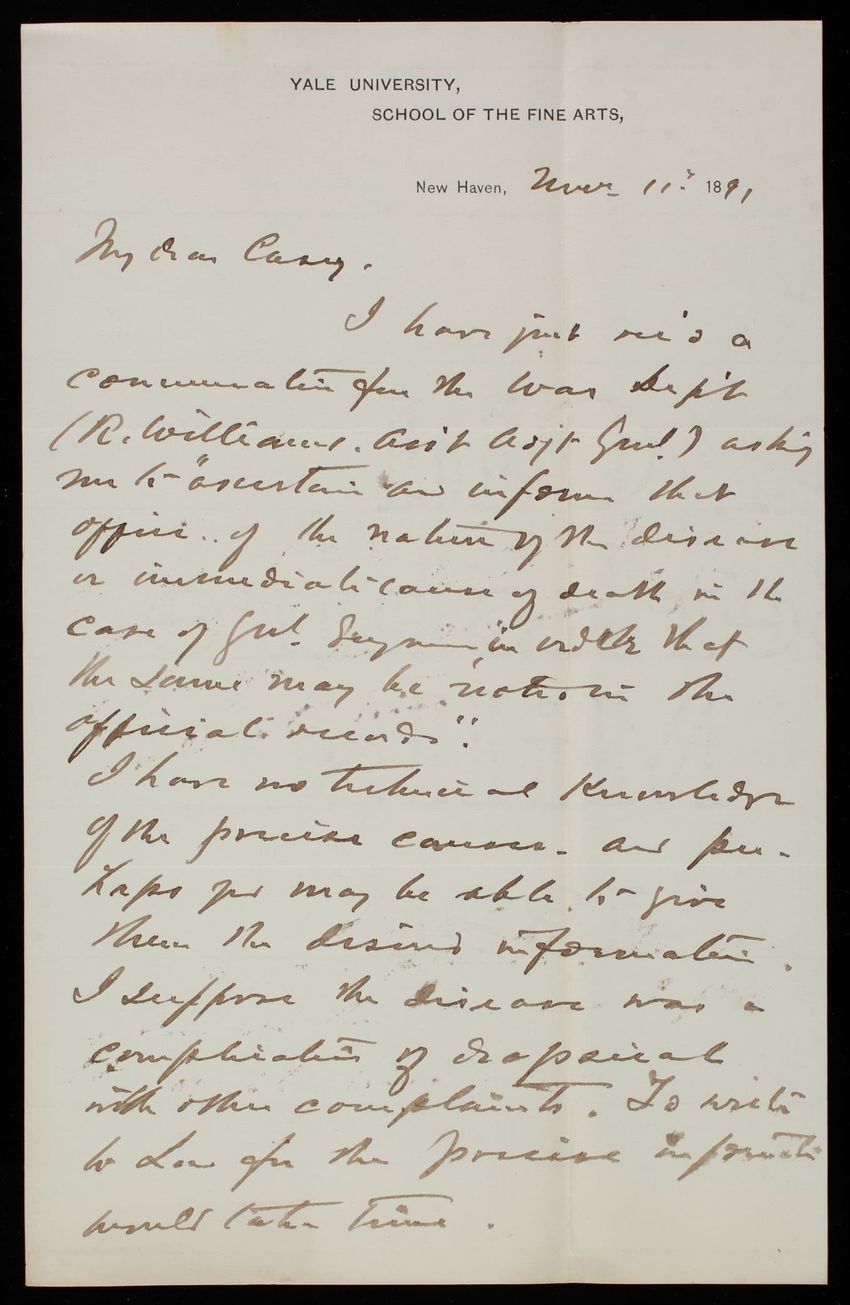 YALE UNIVERSITY,
SCHOOL OF THE FINE ARTS,
New Haven, Nov. 11th 1891
My dear Casey.
I have just rec'd a
communication from the War Dep't
(R. Williams. Ass't Adj't Genl.) asking
me to "ascertain and inform that
office .. of the nature of the disease
or immediate cause of death in the
case of Genl. Seymour, in order that
the same may be noted in the
official records".
I have no technical knowledge
of the precise causes - and per-
haps you may be able to give
them the desired information.
I suppose the disease was a
complication of dropsical
with other complaints. To write
to for the precise information
would take time.